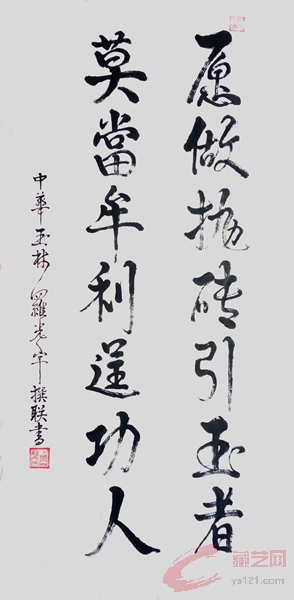 愿做抛砖引玉者
莫當牟利逞功人
中華玉林羅光宇撰联書
藏艺网
ys121.com